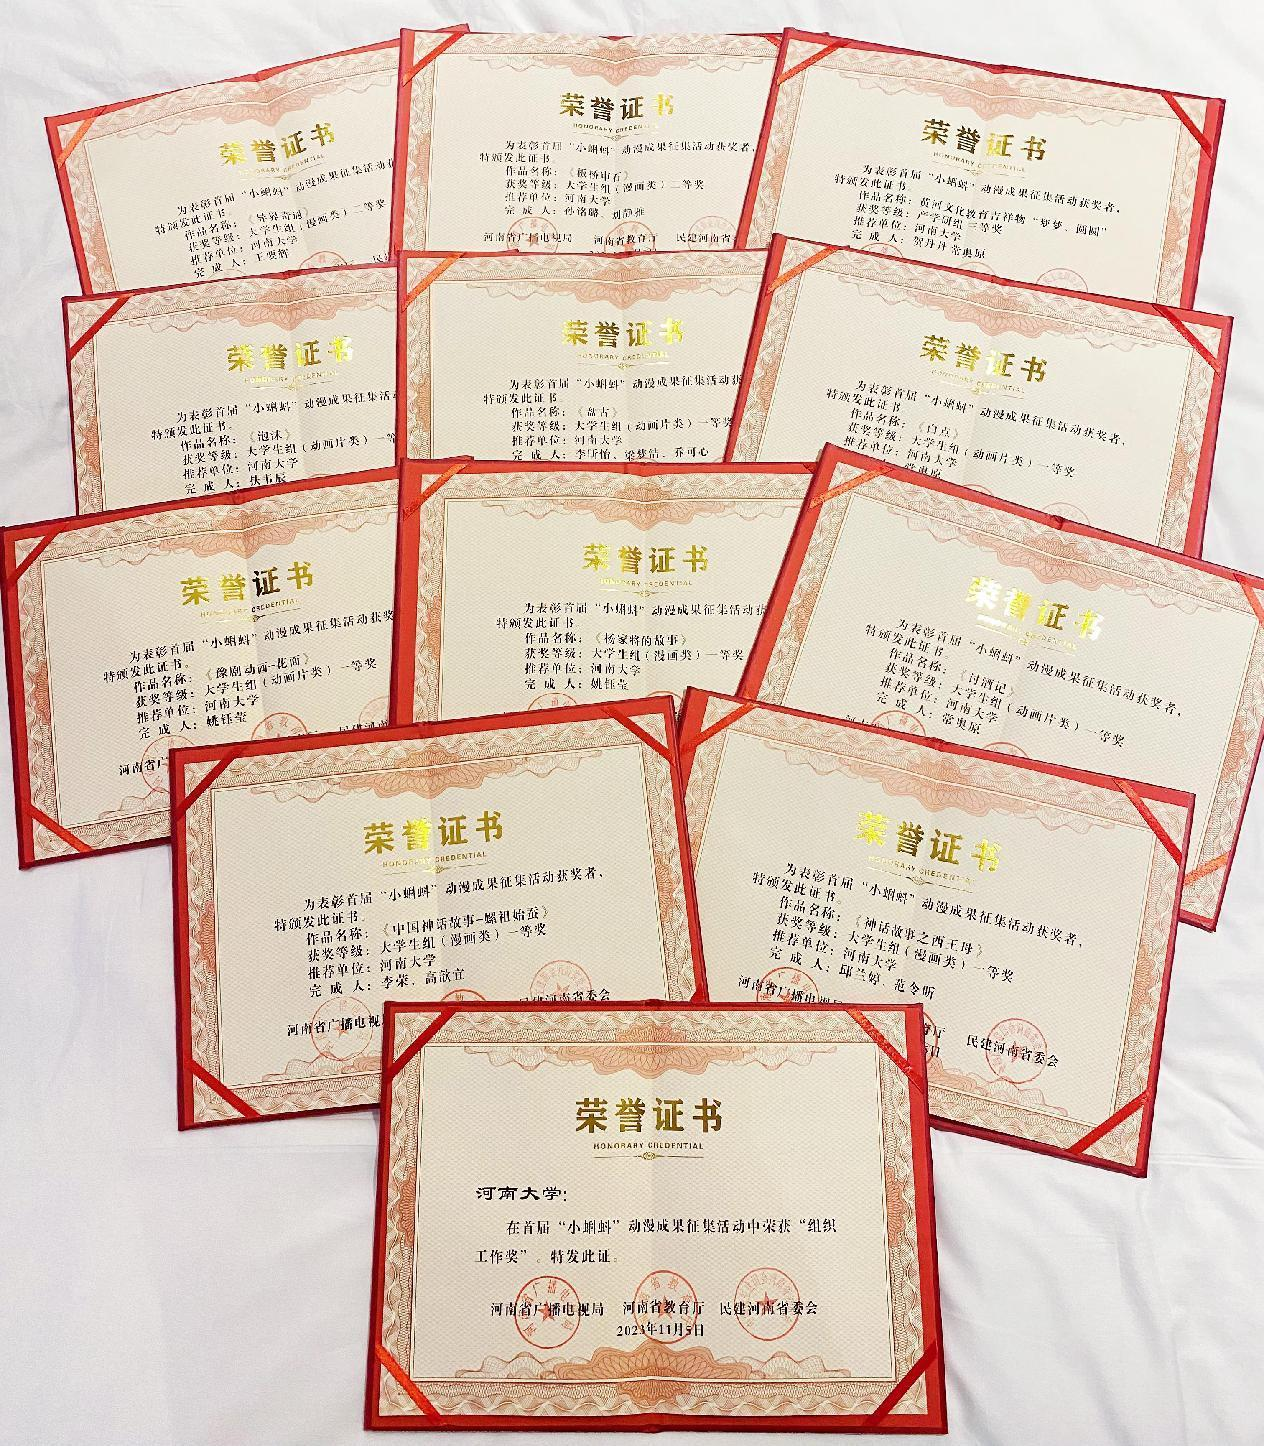 荣誉证书
HONORARY CREDENTIAL
为表彰首届“小蝌蚪”动漫成果征集活动获
特颁发此证书。
作品名称：《异界奇冠》
获奖等级：大学生组（漫画类）二等奖
推荐单位：河南大学
完 成 人：王要辉
荣誉证书
HONORARY CREDENTIAL
为表彰首届“小蝌蚪”动漫成果征集活动获奖者，
特颁发此证书。
作品名称：《板桥审石》
获奖等级：大学生组（漫画类）二等奖
推荐单位：河南大学
完 成 人：孙铭璐、刘静雅
河南省广播电视局 河南省教育厅 民建河南省
荣誉证书
HONORARY CREDENTIAL
为表彰首届“小蝌蚪”动漫成果征集活动获奖者，
特颁发此证书。
作品名称：黄河文化教育吉祥物“梦梦、圆圆”
获奖等级：产学研组三等奖
推荐单位：河南大学
完 成 人：贺丹丹 常奥原
荣誉证书
HONORARY CREDENTIAL
为表彰首届“小蝌蚪”动漫成果征集活动
特颁发此证书。
作品名称：《泡沫》
获奖等级：大学生组（动画片类）一等
推荐单位：河南大学
完 成 人：扶韦辰
荣誉证书
HONORARY CREDENTIAL
为表彰首届“小蝌蚪”动漫成果征集活动获
特颁发此证书。
作品名称：《盘古》
获奖等级：大学生组（动画片类）一等奖
推荐单位：河南大学
完 成 人：李昕怡、梁梦洁、乔可心
荣誉证书
HONORARY CREDENTIAL
为表彰首届“小蝌蚪”动漫成果征集活动获奖者，
特颁发此证书。
作品名称：《白点》
获奖等级：大学生组（动画片类）一等奖
推荐单位：河南大学
常奥原
荣誉证书
HONORARY CREDENTIAL
为表彰首届“小蝌蚪”动漫成果征集活动获奖
特颁发此证书。
作品名称：《豫剧动画-花面》
获奖等级：大学生组（动画片类）一等奖
推荐单位：河南大学
完 成 人：姚钰莹
河南省广
民建河南
荣誉证书
HONORARY CREDENTIAL
为表彰首届“小蝌蚪”动漫成果征集活动获
特颁发此证书。
作品名称：《杨家将的故事》
获奖等级：大学生组（漫画类）一等奖
推荐单位：河南大学
完 成 人：姚钰莹
荣誉证书
HONORARY CREDENTIAL
为表彰首届“小蝌蚪”动漫成果征集活动获奖者，
特颁发此证书。
作品名称：《讨酒记》
获奖等级：大学生组（动画片类）一等奖
推荐单位：河南大学
完 成 人：常奥原
荣誉证书
HONORARY CREDENTIAL
为表彰首届“小蝌蚪”动漫成果征集活动获奖者，
特颁发此证书。
作品名称：《中国神话故事-嫘祖始蚕》
获奖等级：大学生组（漫画类）一等奖
推荐单位：河南大学
完 成 人：李荣、高歆宜
河南省广播电视局
民建河南省委会
荣誉证书
HONORARY CREDENTIAL
为表彰首届“小蝌蚪”动漫成果征集活动获奖者，
特颁发此证书。
作品名称：《神话故事之西王母》
获奖等级：大学生组（漫画类）一等奖
推荐单位：河南大学
完 成 人：邱兰婷、范令昕
河南省广播电视局
育厅 民建河南省委会
日
荣誉证书
HONORARY CREDENTIAL
河南大学：
在首届“小蝌蚪”动漫成果征集活动中荣获“组织
工作奖”。特发此证。
河南省广播电视局 河南省教育厅 民建河南省委会
2023年11月5日